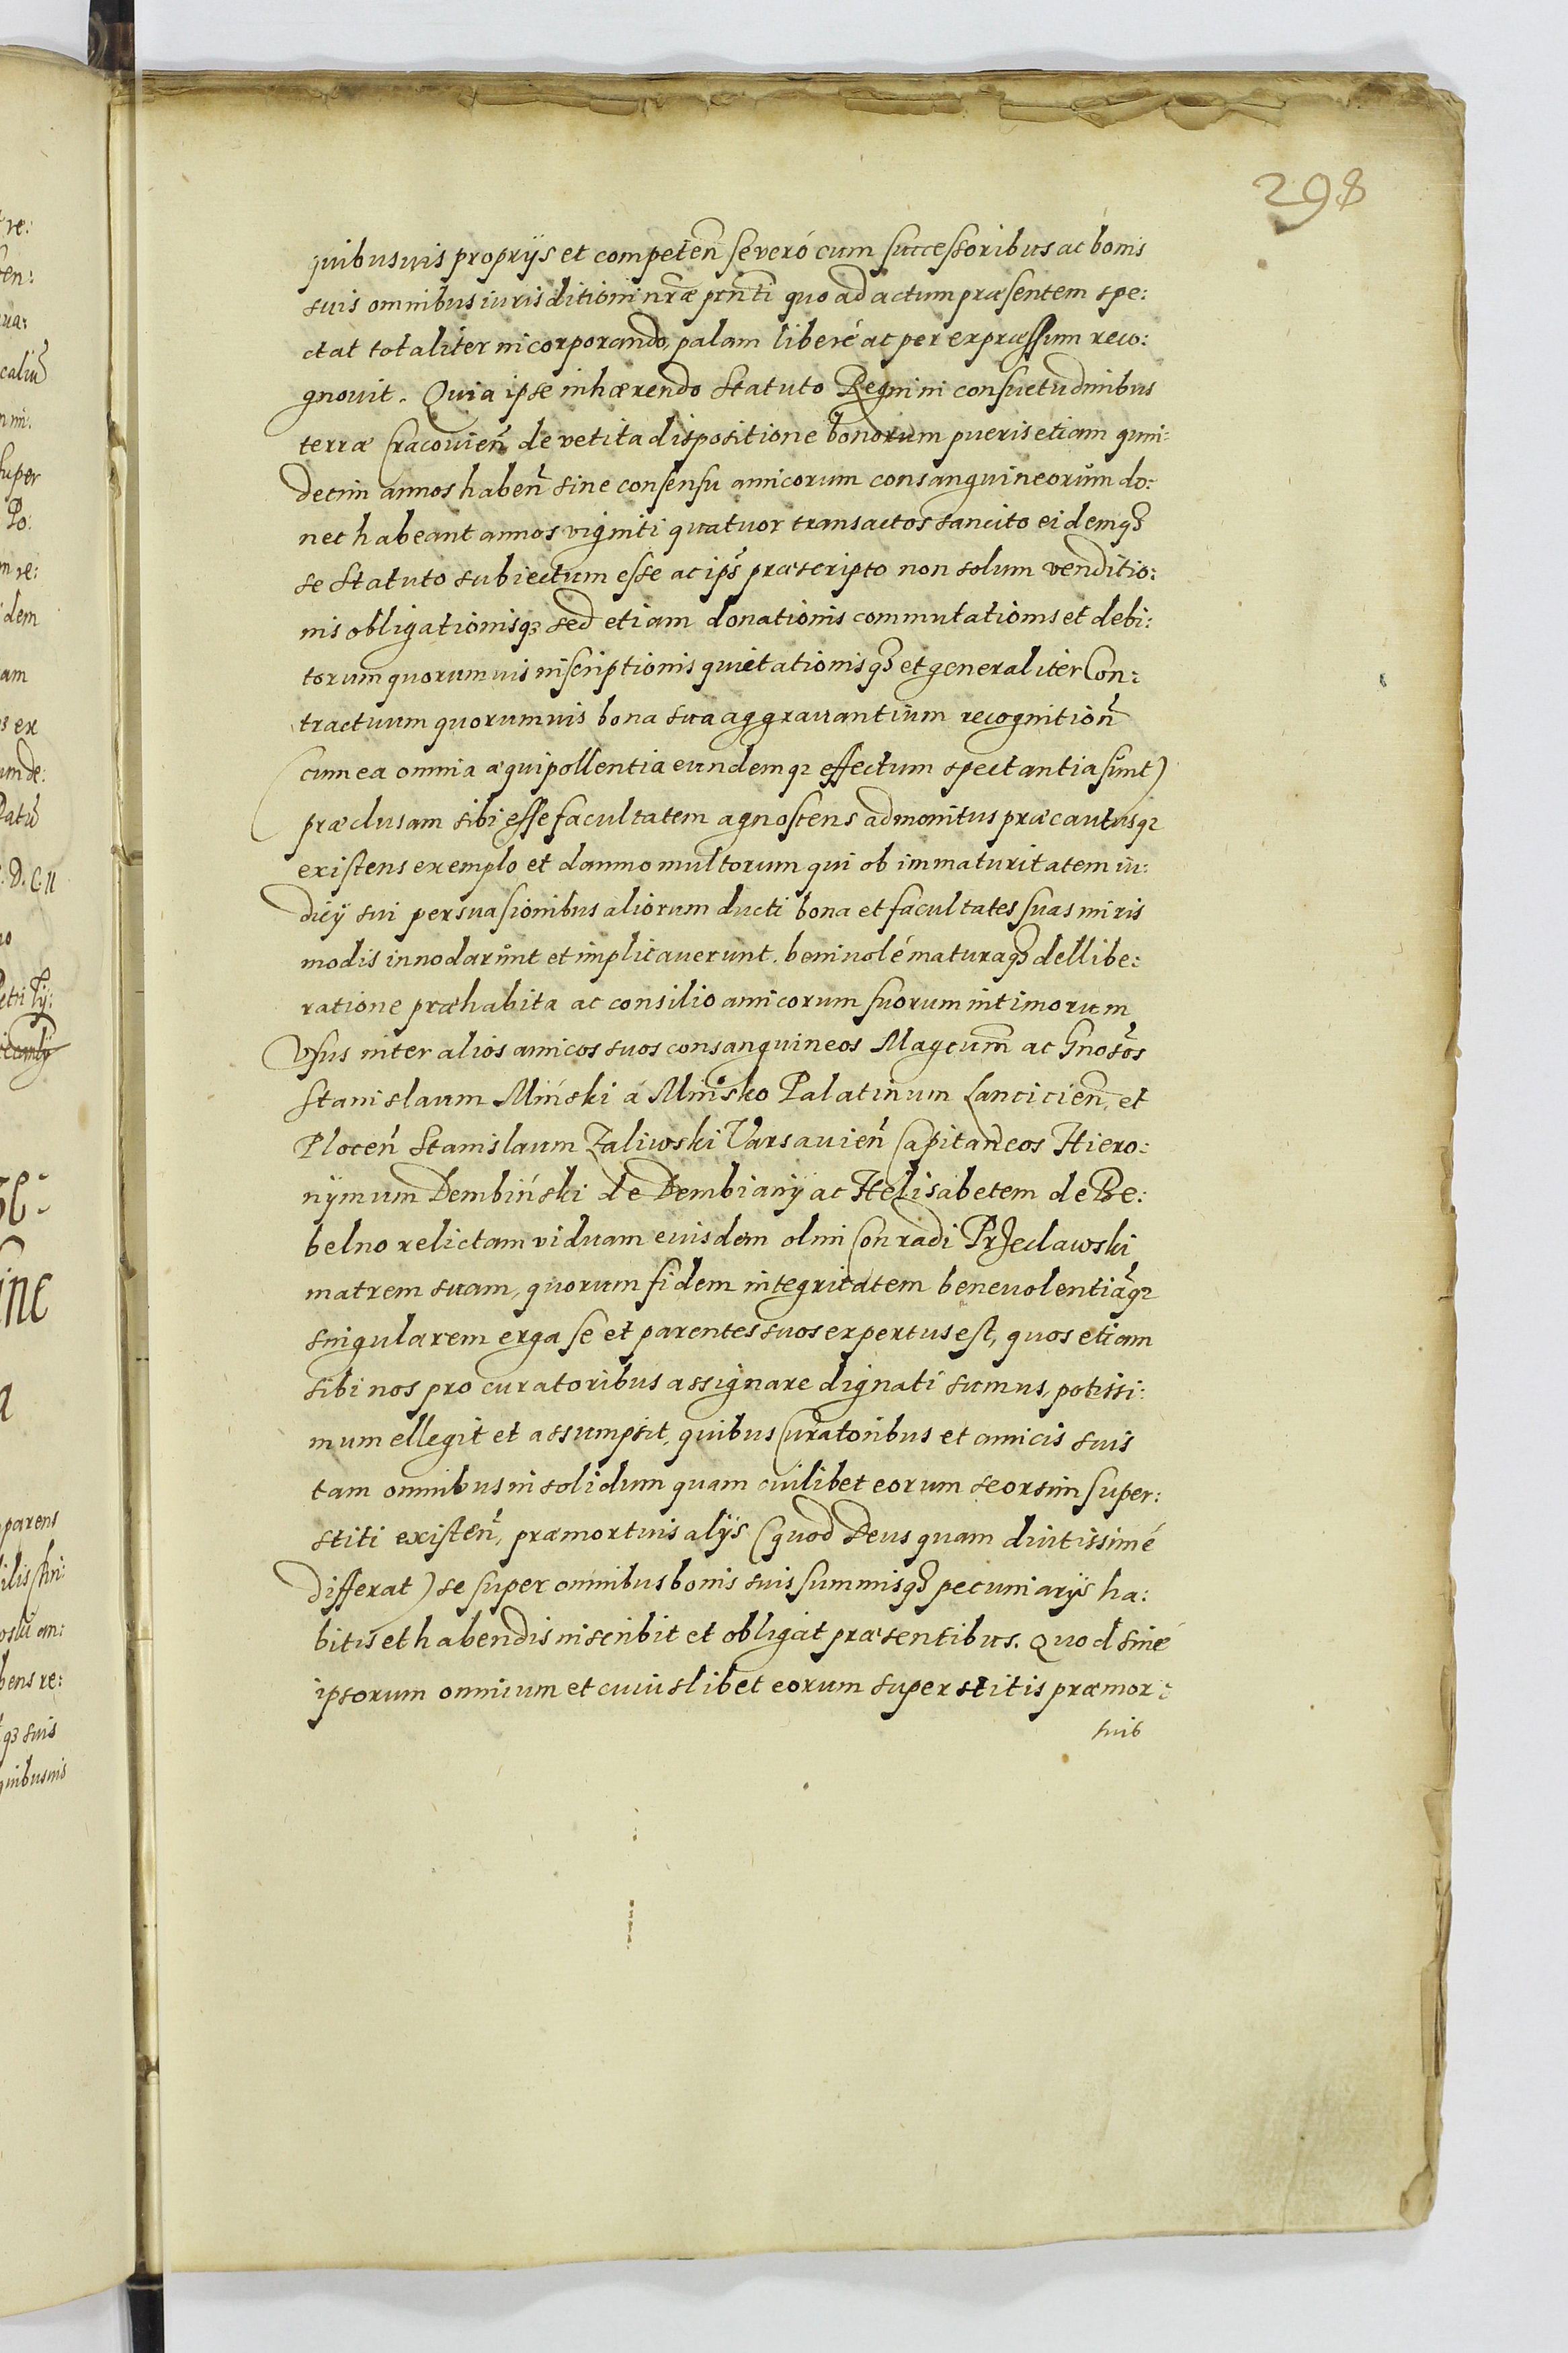 298
quibusuis proprijs et competen̄ se veró cum successoribus ac bonis
suis omnibus iurisditioni nr̄æ pn̄ti quo ad actum præsentem spe:
ctat totaliter incorporando, palam liberé ac per expræssum reco:
gnouit. Quia ipse inhærendo Statuto Regni in consuetudinibus
terræ Cracouien̄ de vetita dispositione bonorum pueris etiam quin:
decim annos haben̄ sine consensu amicorum consanguineorum do:
nec habeant annos viginti quatuor transactos sancito eidemqꝫ
se Statuto subiectum esse ac ips̄ præscripto non solum venditio:
nis obligationisqꝫ sed etiam donationis commutationis et debi:
torum quorumuis inscriptionis quietationisqꝫ et generaliter Con:
tractuum quorumuis bona sua aggrauantium recognition̄
(cum ea omnia æquipollentia eundemqꝫ effectum spectantia sunt)
præclusam sibi esse facultatem agnoscens admonitus præcautusqꝫ
existens exemplo et damno multorum qui ob immaturitatem iu:
dicÿ sui persuasionibus aliorum ducti bona et facultates suas miris
modis innodarunt et implicauerunt. beniuolé maturaqꝫ dellibe:
ratione præhabita ac consilio amicorum suorum intimorum
Vsus inter alios amicos suos consanguineos Magcum̄ ac Gnosos̄
Stanislaum Miński á Mińsko Palatinum Lancicien̄, et
Plocen̄ Stanislaum Zaliwski Varsauien̄ Capitaneos Hiero:
nÿmum Dembiński de Dembianÿ ac Helisabetem de Be:
belno relictam viduam euisdem olim Conradi Przeclawski
matrem suam, quorum fidem integritatem beneuolentiāqꝫ
singularem erga se et parentes suos expertus est, quos etiam
sibi nos pro curatoribus assignare dignati sumus, potissi:
mum ellegit et assumpsit, quibus Curatoribus et amicis suis
tam omnibus in solidum quam cuilibet eorum seorsim super:
stiti existen̄, præmortuis alÿs (quod Deus quam diutissimé
differat) se super omnibus bonis suis summisqꝫ pecuniarÿs ha:
bitis et habendis inscribit et obligat præsentibus. Quod sine
ipsorum omnium et cuiuslibet eorum superstitis præmor:
tuis